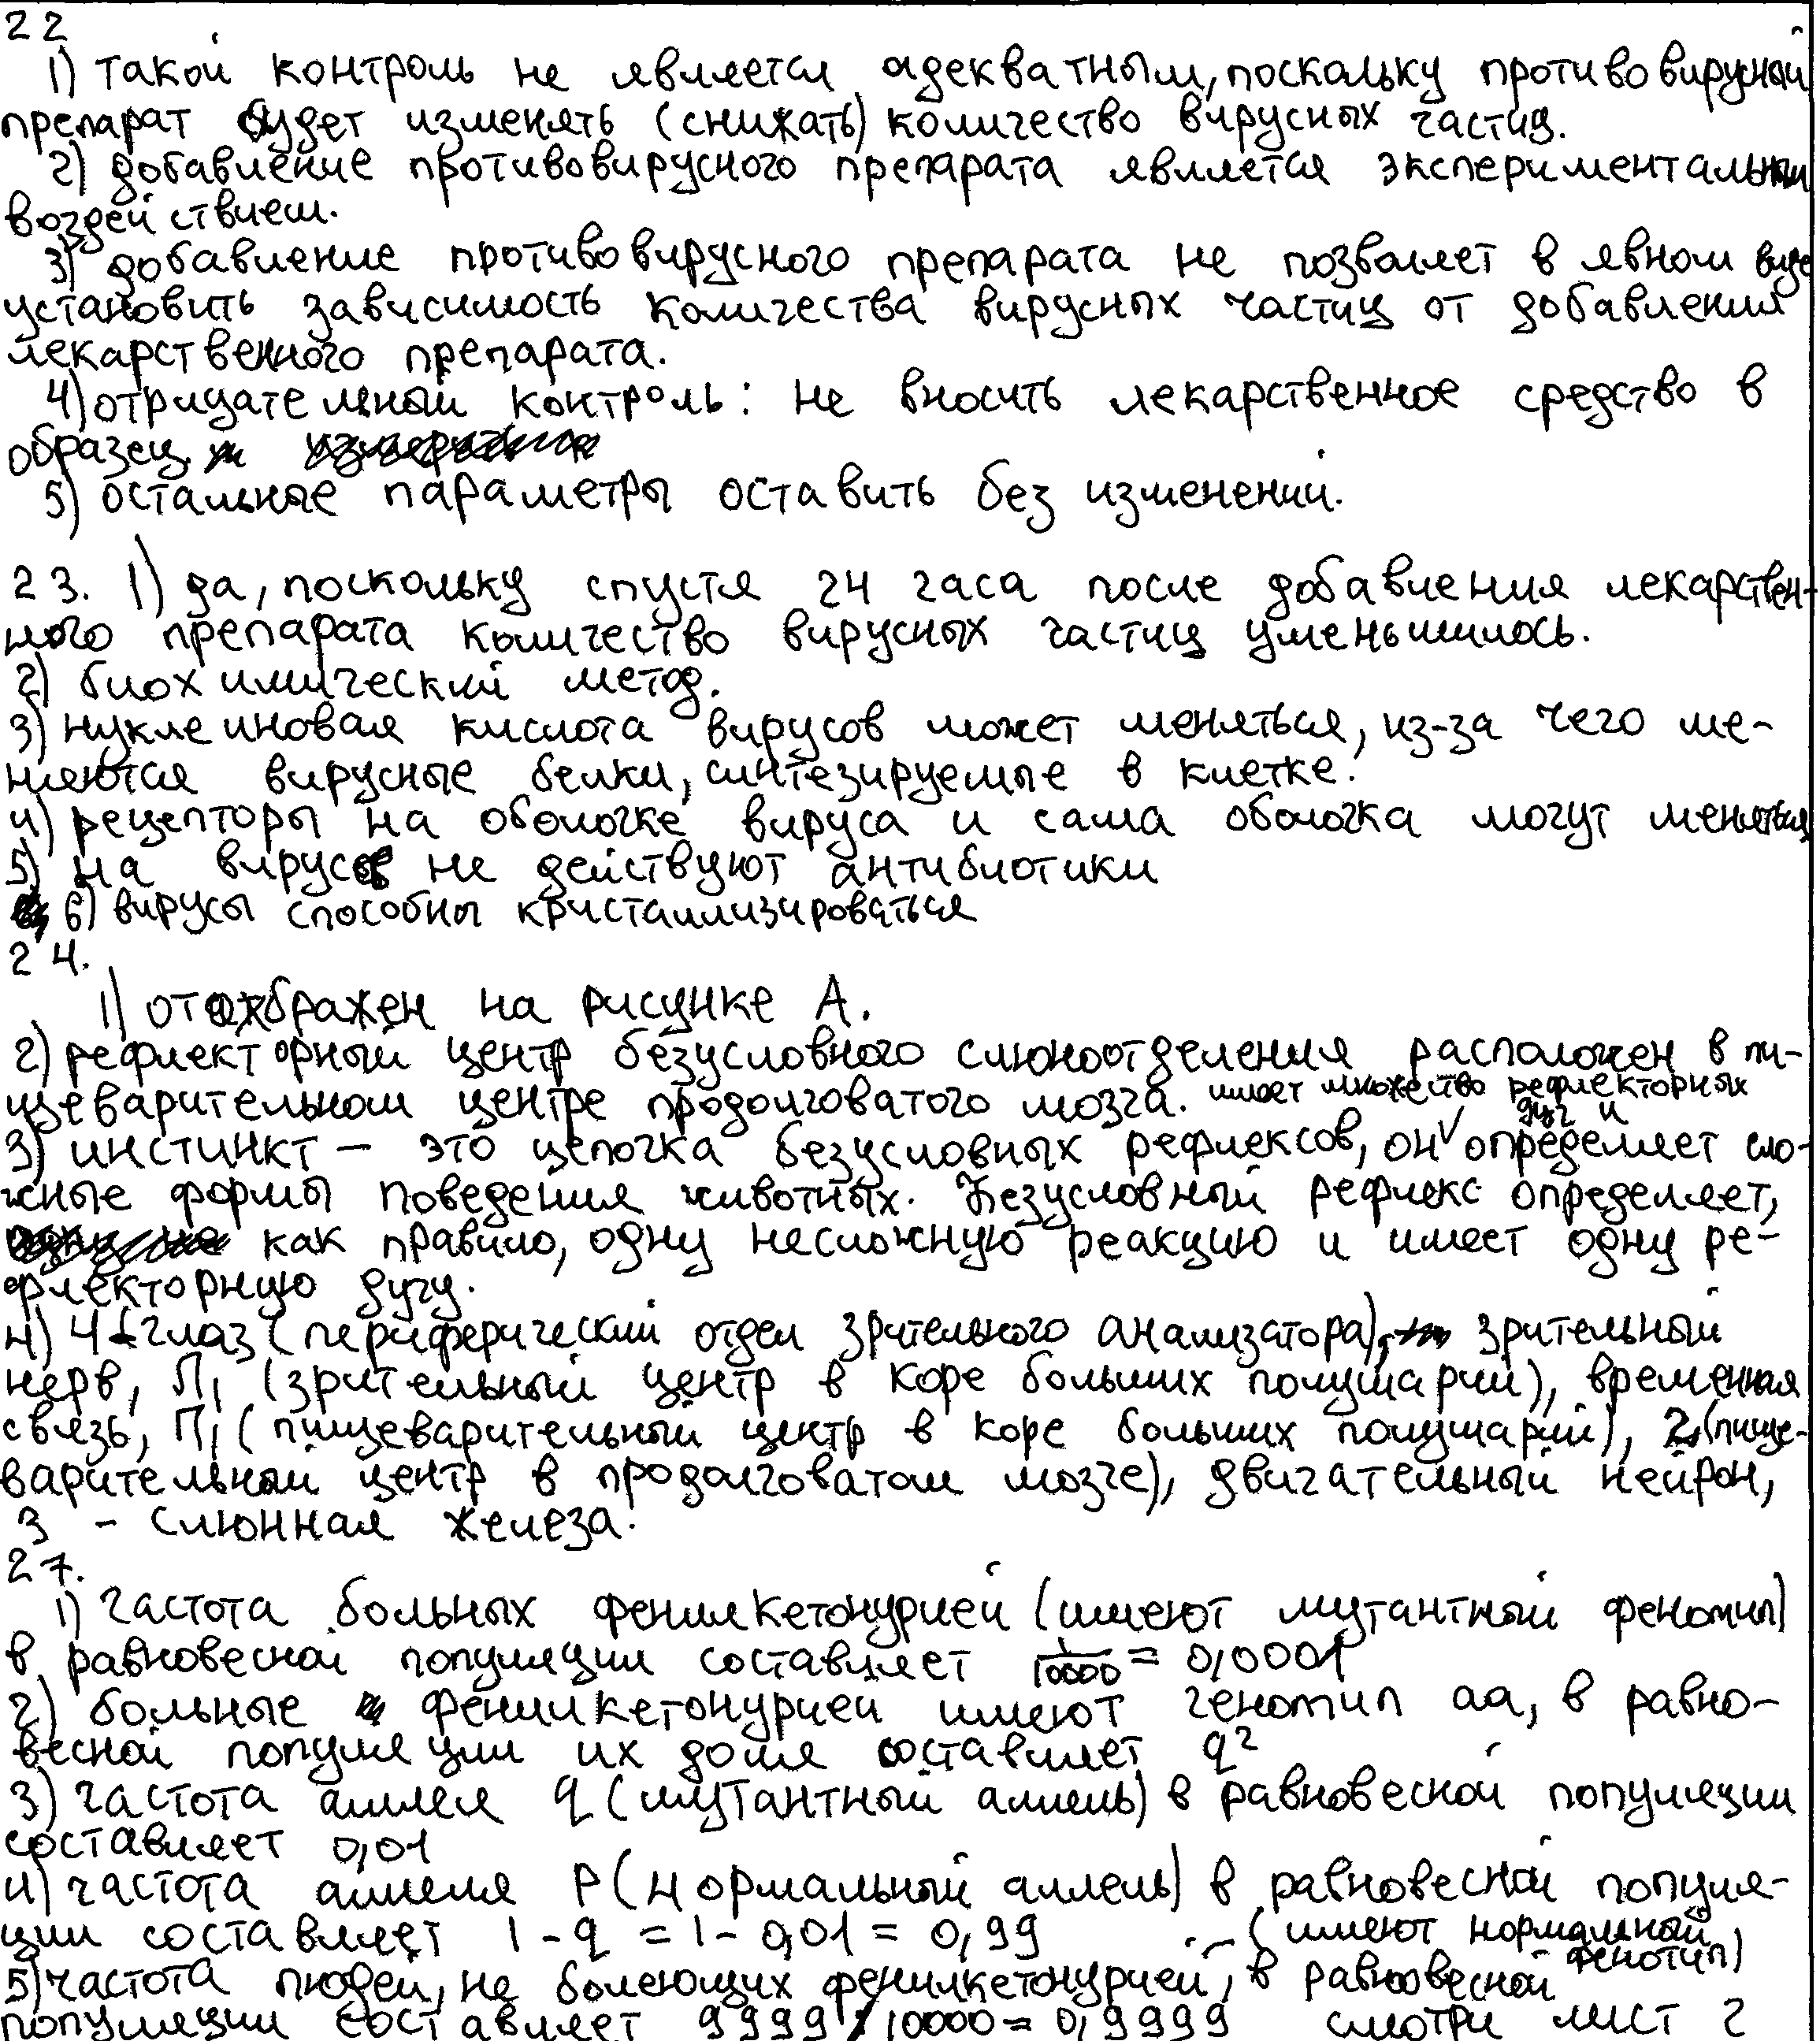 22
1) такой контроль не является адекватным, поскольку противовирусный
препарат будет изменять (снижать) количество вирусных частиц.
2) добавление противовирусного препарата является экспериментальным
воздействием.
3) добавление противовирусного препарата не позволяет в явном виде
установить зависимость количества вирусных частиц от добавления
лекарственного препарата.
4) отрицательный контроль: не вносить лекарственное средство в
образец.
5) остальные параметры оставить без изменений.
23. 1) да, поскольку спустя 24 часа после добавления лекарствен-
ного препарата количество вирусных частиц уменьшилось.
2) биохимический метод.
3) нуклеиновая кислота вирусов может меняться, из-за чего ме-
няются вирусные белки, синтезируемые в клетке.
4) рецепторы на оболочке вируса и сама оболочка могут меняться
5) на вирусы не действуют антибиотики
6) вирусы способны кристаллизироваться
24.
1) отображен на рисунке А.
2) рефлекторный центр безусловного слюноотделения расположен в пи-
щеварительном центре продолговатого мозга.
имеет множество рефлекторных
дуг и
3) инстинкт – это цепочка безусловных рефлексов, он определяет сло-
жные формы поведения животных. Безусловный рефлекс определяет,
как правило, одну несложную реакцию и имеет одну ре-
флекторную дугу.
4) 4 глаз (периферический отдел зрительного анализатора), зрительный
нерв, Л1 (зрительный центр в коре больших полушарий), временная
связь, П1 (пищеварительный центр в коре больших полушарий), 2 (пище-
варительный центр в продолговатом мозге), двигательный нейрон,
3 – слюнная железа.
27.
1) частота больных фенилкетонурией (имеют мутантный фенотип)
в равновесной популяции составляет 1/10000 = 0,0001
2) больные фенилкетонурией имеют генотип аа, в равно-
весной популяции их доля составляет q²
3) частота аллеля q (мутантный аллель) в равновесной популяции
составляет 0,01
4) частота аллеля p (нормальный аллель) в равновесной популя-
ции составляет 1-q = 1-0,01 = 0,99
(имеют нормальный
фенотип)
5) частота людей, не болеющих фенилкетонурией, в равновесной
популяции составляет 9999/10000 = 0,9999 смотри лист 2